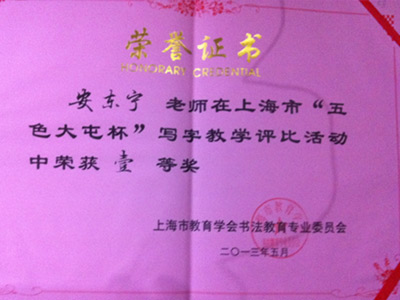 荣誉证书
HONORARY CREDENTIAL
安东宁 老师在上海市“五
色大屯杯”写字教学评比活动
中荣获 壹 等奖
上海市教育学会书法教育专业委员会
二〇一三年五月